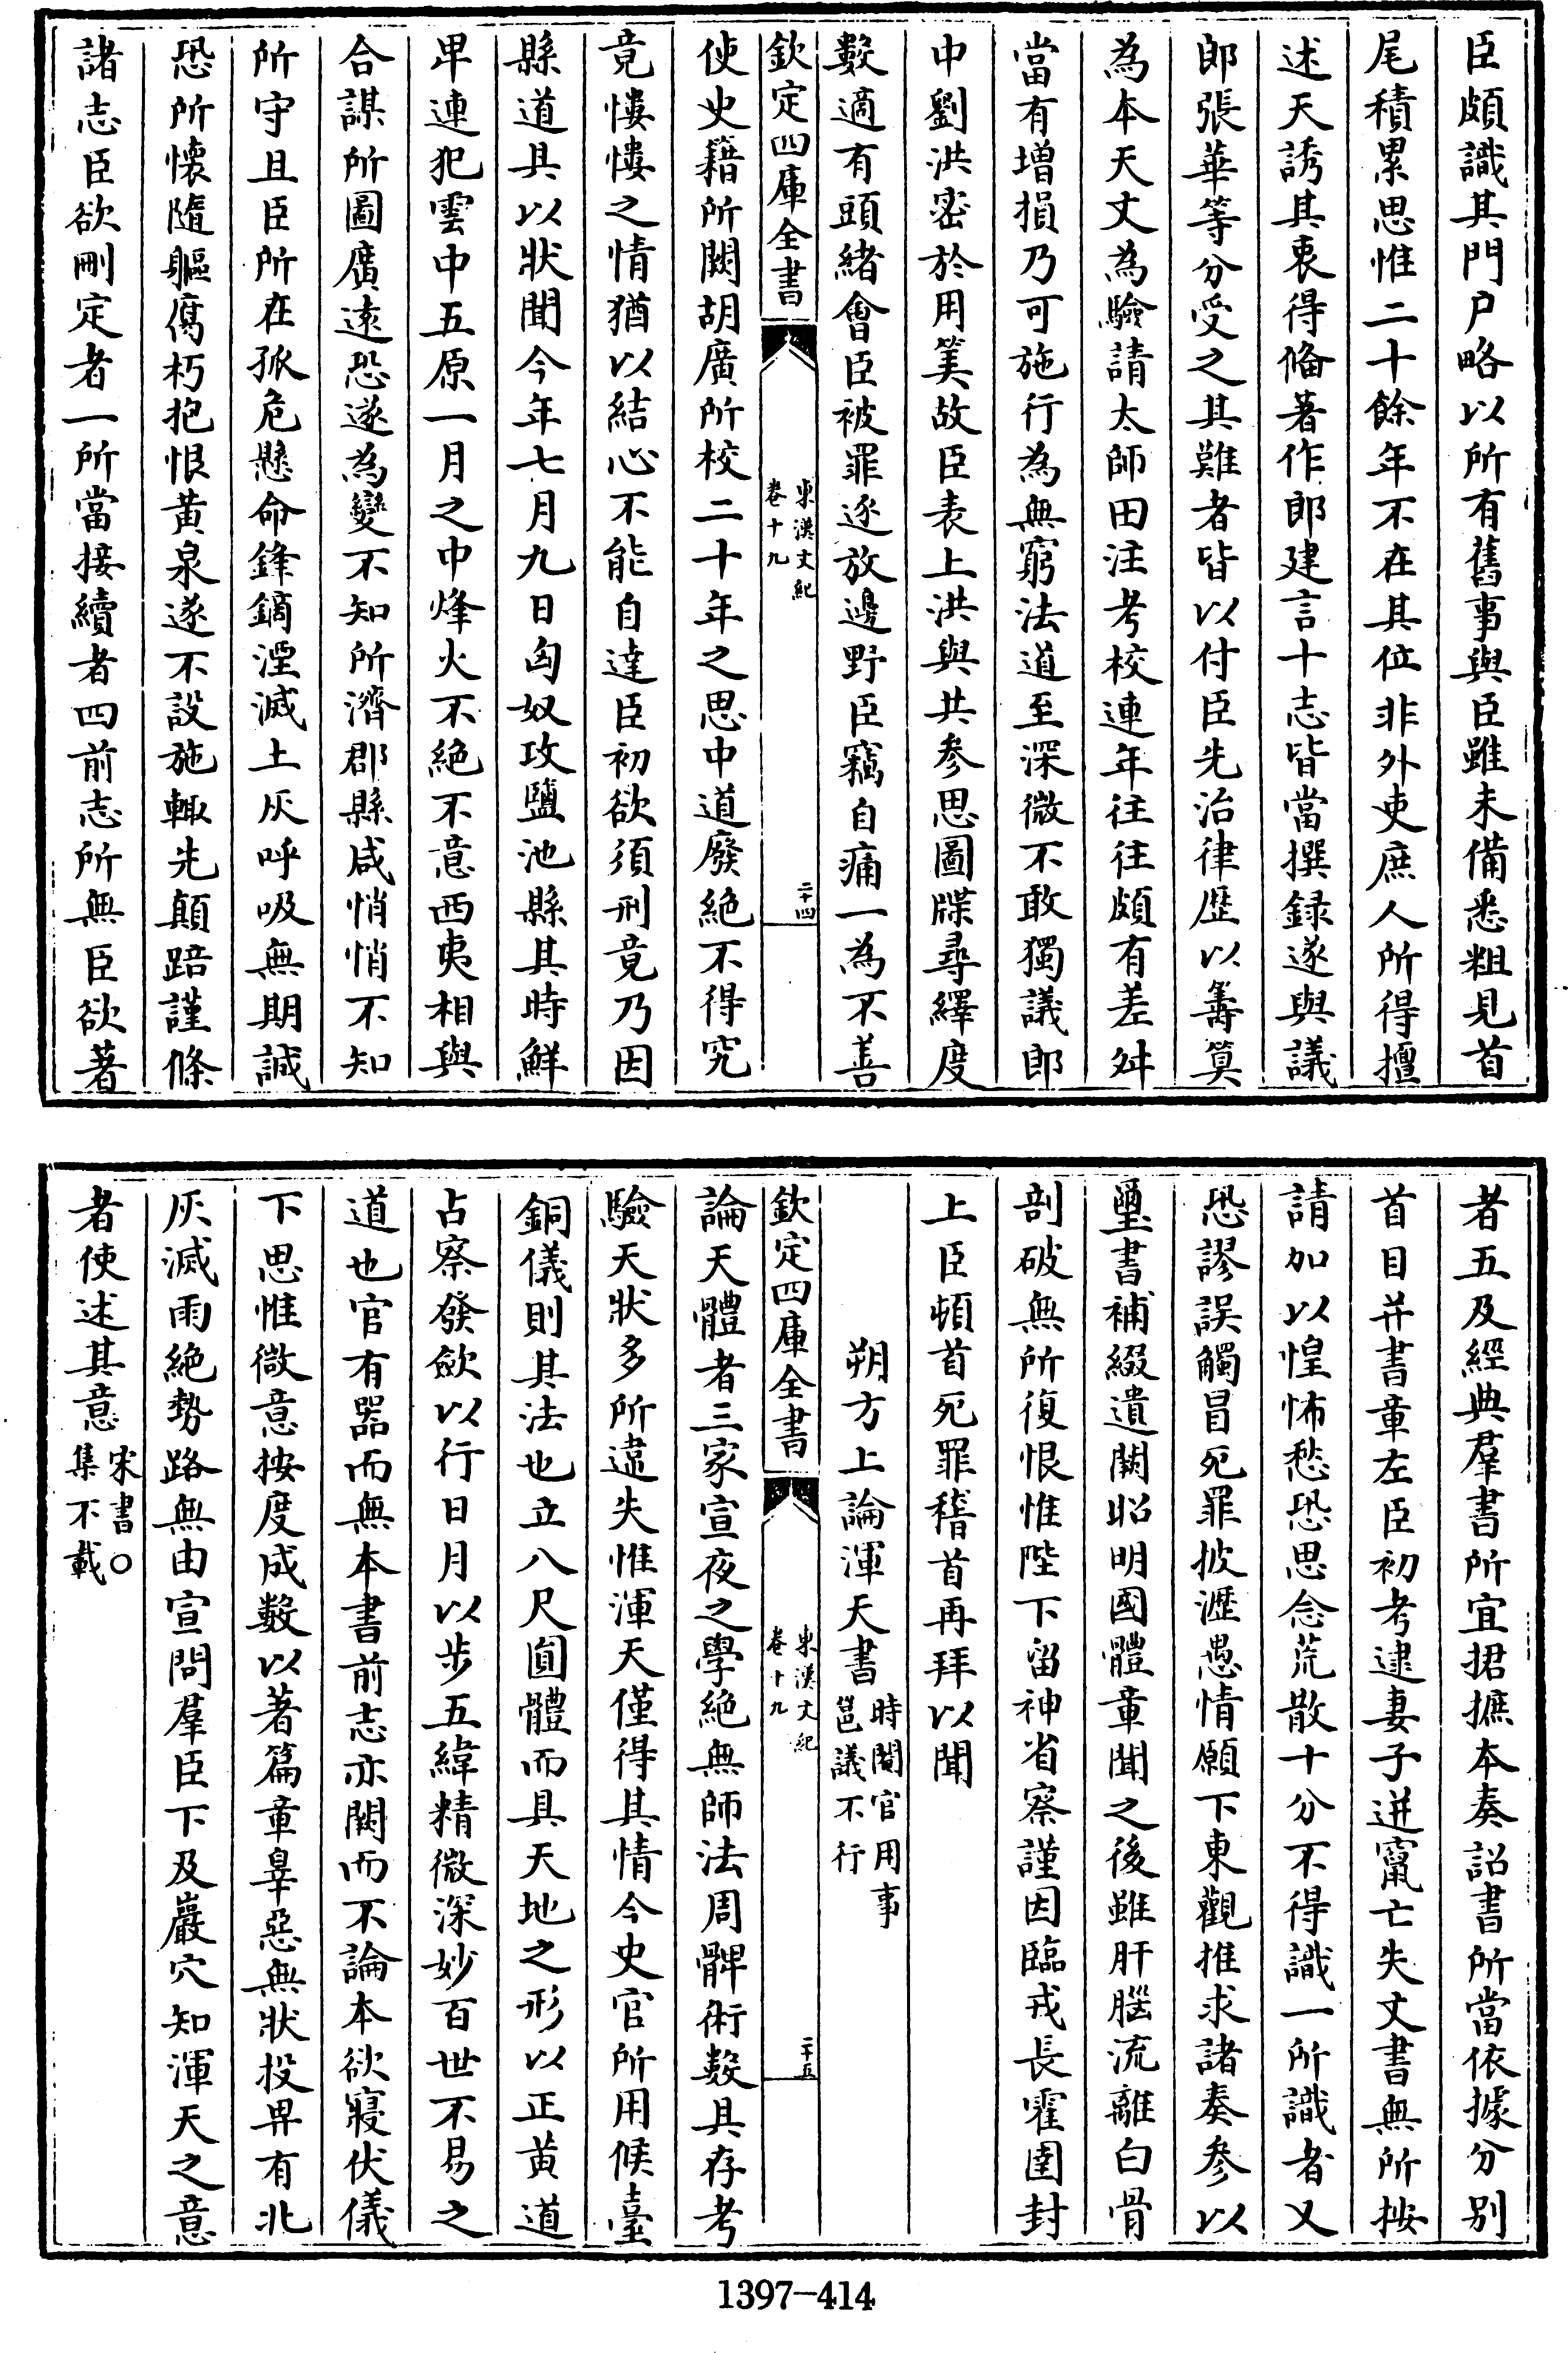 臣頗識其門户略以所有舊事與臣雖未備悉粗見首
尾積累思惟二十餘年不在其位非外吏庶人所得擅
述天誘其衷得偹著作郎建言十志皆當撰録遂與議
郎張華等分受之其難者皆以付臣先治律歴以籌筭
為本天文為驗請太師田注考校連年往往頗有差舛
當有増損乃可施行為無窮法道至深微不敢獨議郎
中劉洪宻於用筭故臣表上洪與共參思圖牒尋繹度
數適有頭緒會臣被罪逐放邊野臣竊自痛一為不善
欽定四庫全書
東漢文紀
卷十九
二十四
使史籍所闕胡廣所校二十年之思中道廢絶不得究
竟慺慺之情猶以結心不能自達臣初欲須刑竟乃因
縣道具以狀聞今年七月九日匈奴攻鹽池縣其時鮮
卑連犯雲中五原一月之中烽火不絶不意西夷相與
合謀所圖廣逺恐遂為變不知所濟郡縣咸悄悄不知
所守且臣所在孤危懸命鋒鏑湮滅土灰呼吸無期誠
恐所懷隨軀腐朽抱恨黄泉遂不設施輒先顛踣謹條
諸志臣欲刪定者一所當接續者四前志所無臣欲著
者五及經典羣書所宜捃摭本奏詔書所當依據分别
首目并書章左臣初考逮妻子迸竄亡失文書無所按
請加以惶怖愁恐思念荒散十分不得識一所識者又
恐謬誤觸冒死罪披瀝愚情願下東觀推求諸奏參以
璽書補綴遺闕昭明國體章聞之後雖肝腦流離白骨
剖破無所復恨惟陛下留神省察謹因臨戎長霍圉封
上臣頓首死罪稽首再拜以聞
朔方上論渾天書
時閹官用事
邕議不行
欽定四庫全書
東漢文紀
卷十九
二十五
論天體者三家宣夜之學絶無師法周髀術數具存考
驗天狀多所違失惟渾天僅得其情今史官所用候臺
銅儀則其法也立八尺圓體而具天地之形以正黄道
占察發歛以行日月以步五緯精微深妙百世不易之
道也官有噐而無本書前志亦闕而不論本欲寢伏儀
下思惟微意按度成數以著篇章辠惡無狀投畀有北
灰滅雨絶勢路無由宣問羣臣下及巖穴知渾天之意
者使述其意
宋書○
集不載
1397-414